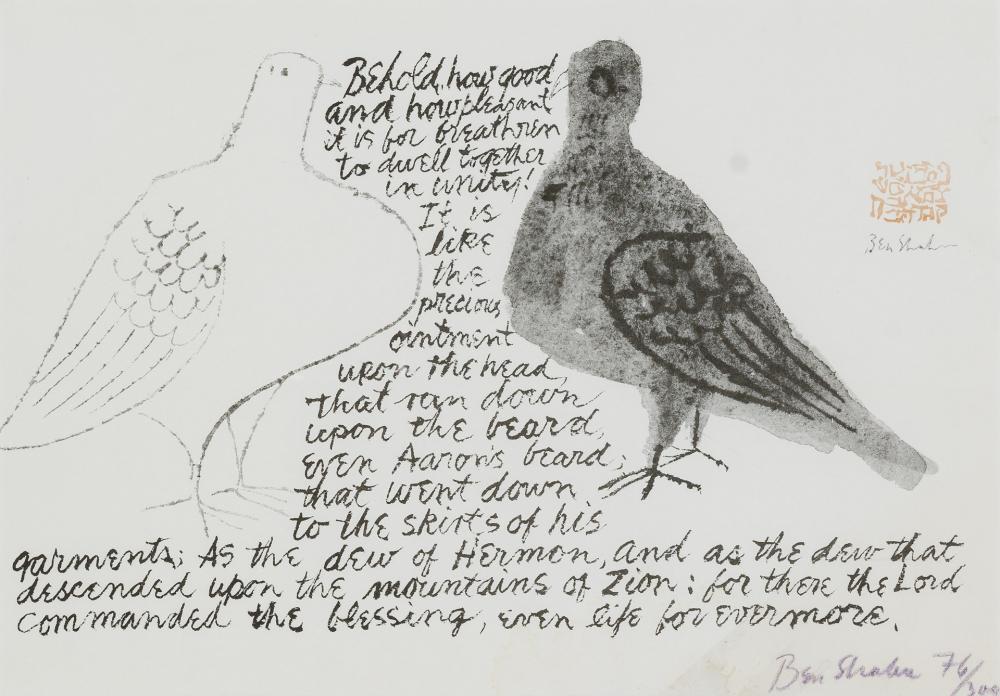 Behold, how good
and how pleasant
it is for breathren
to dwell together
in unity!
It is
like
the
precious
ointment
upon the head,
that ran down
upon the beard,
even Aaron's beard;
that went down
to the skirts of his
garments; As the dew of Hermon, and as the dew that
descended upon the mountains of Zion: for there the Lord
commanded the blessing, even life for evermore.
Ben Shahn
Ben Shahn 76/300